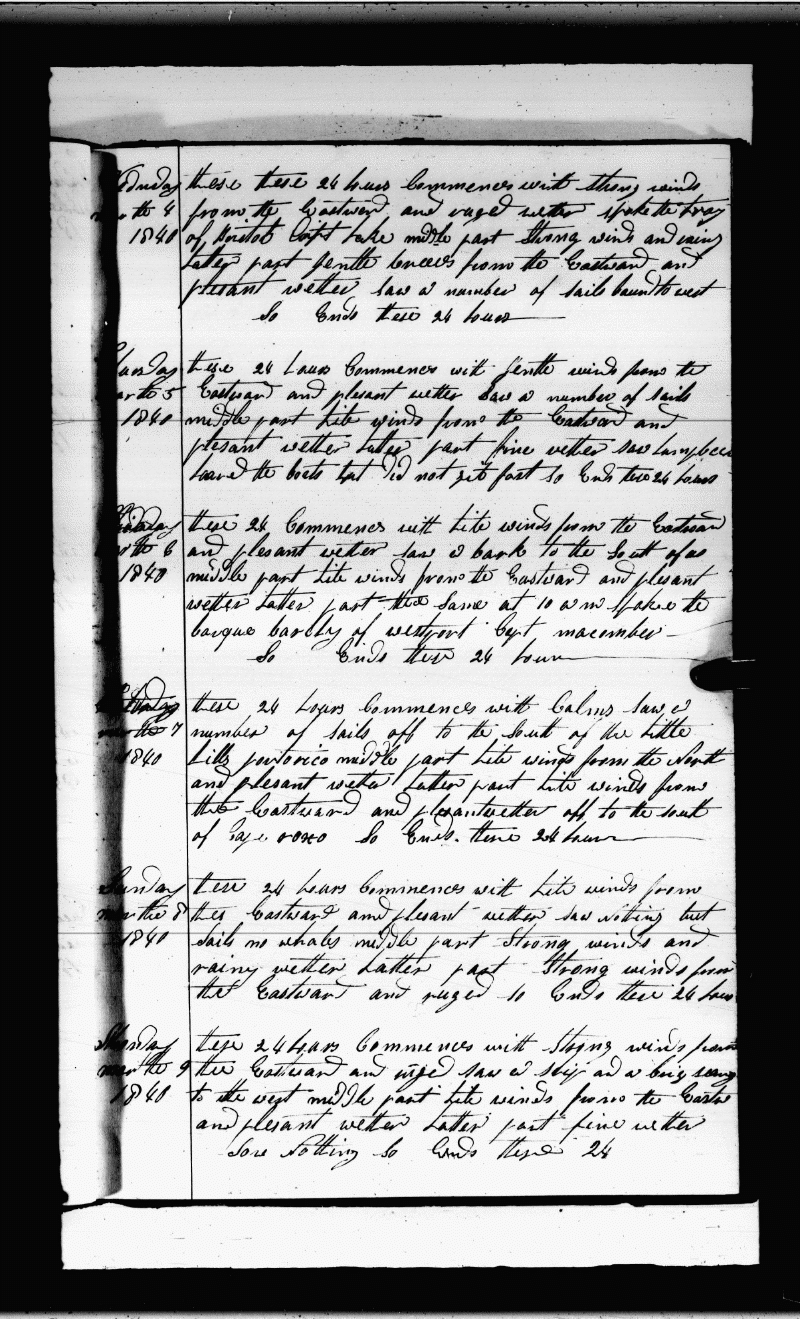 Wednsday these these 24 hours Commences with strong winds
march 4 from the Eastward and ruged wether spoke the brag
1840 of Bristol Capt Lake middle part Strong winds and rainy
Latter part gentle breeses from the Eastward and
plesant wether saw a number of sails bound to west
So Ends these 24 hours
Thursday these 24 hours Commences with gentle winds from the
march 5 Eastward and plesant wether saw a number of sails
1840 middle part Lite winds from the Eastward and
plesant wether Latter part fine wether saw
Loard the boats but did not git fast So Ends these 24 hours
Friday these 24 Commences with Lite winds from the Eastward
march 6 and plesant wether saw a bark to the South of us
1840 middle part Lite winds from the Eastward and plesant
wether Latter part these Same at 10 a m spoke the
barque barcley of westport Capt macomber
So Ends these 24 hours
Saturday these 24 hours Commences with Calms saw a
march 7 number of sails off to the South of the Little
1840 hills portorico middle part Lite winds from the North
and plesant wether Latter part Lite winds from
the Eastward and plesant wether off to the south
of Cape roxo So Ends these 24 hours
Sunday these 24 hours Commences with Lite winds from
march 8 the Eastward and plesant wether saw Nothing but
1840 sails no whales middle part Strong winds and
rainy wether Latter part Strong winds from
the Eastward and ruged So Ends these 24 hours
Monday these 24 hours Commences with Strong winds from
march 9 the Eastward and ruged saw a ship and a brig
1840 to the west middle part Lite winds from the Eastw
and plesant wether Latter part fine wether
Sore Nothing So Ends these 24